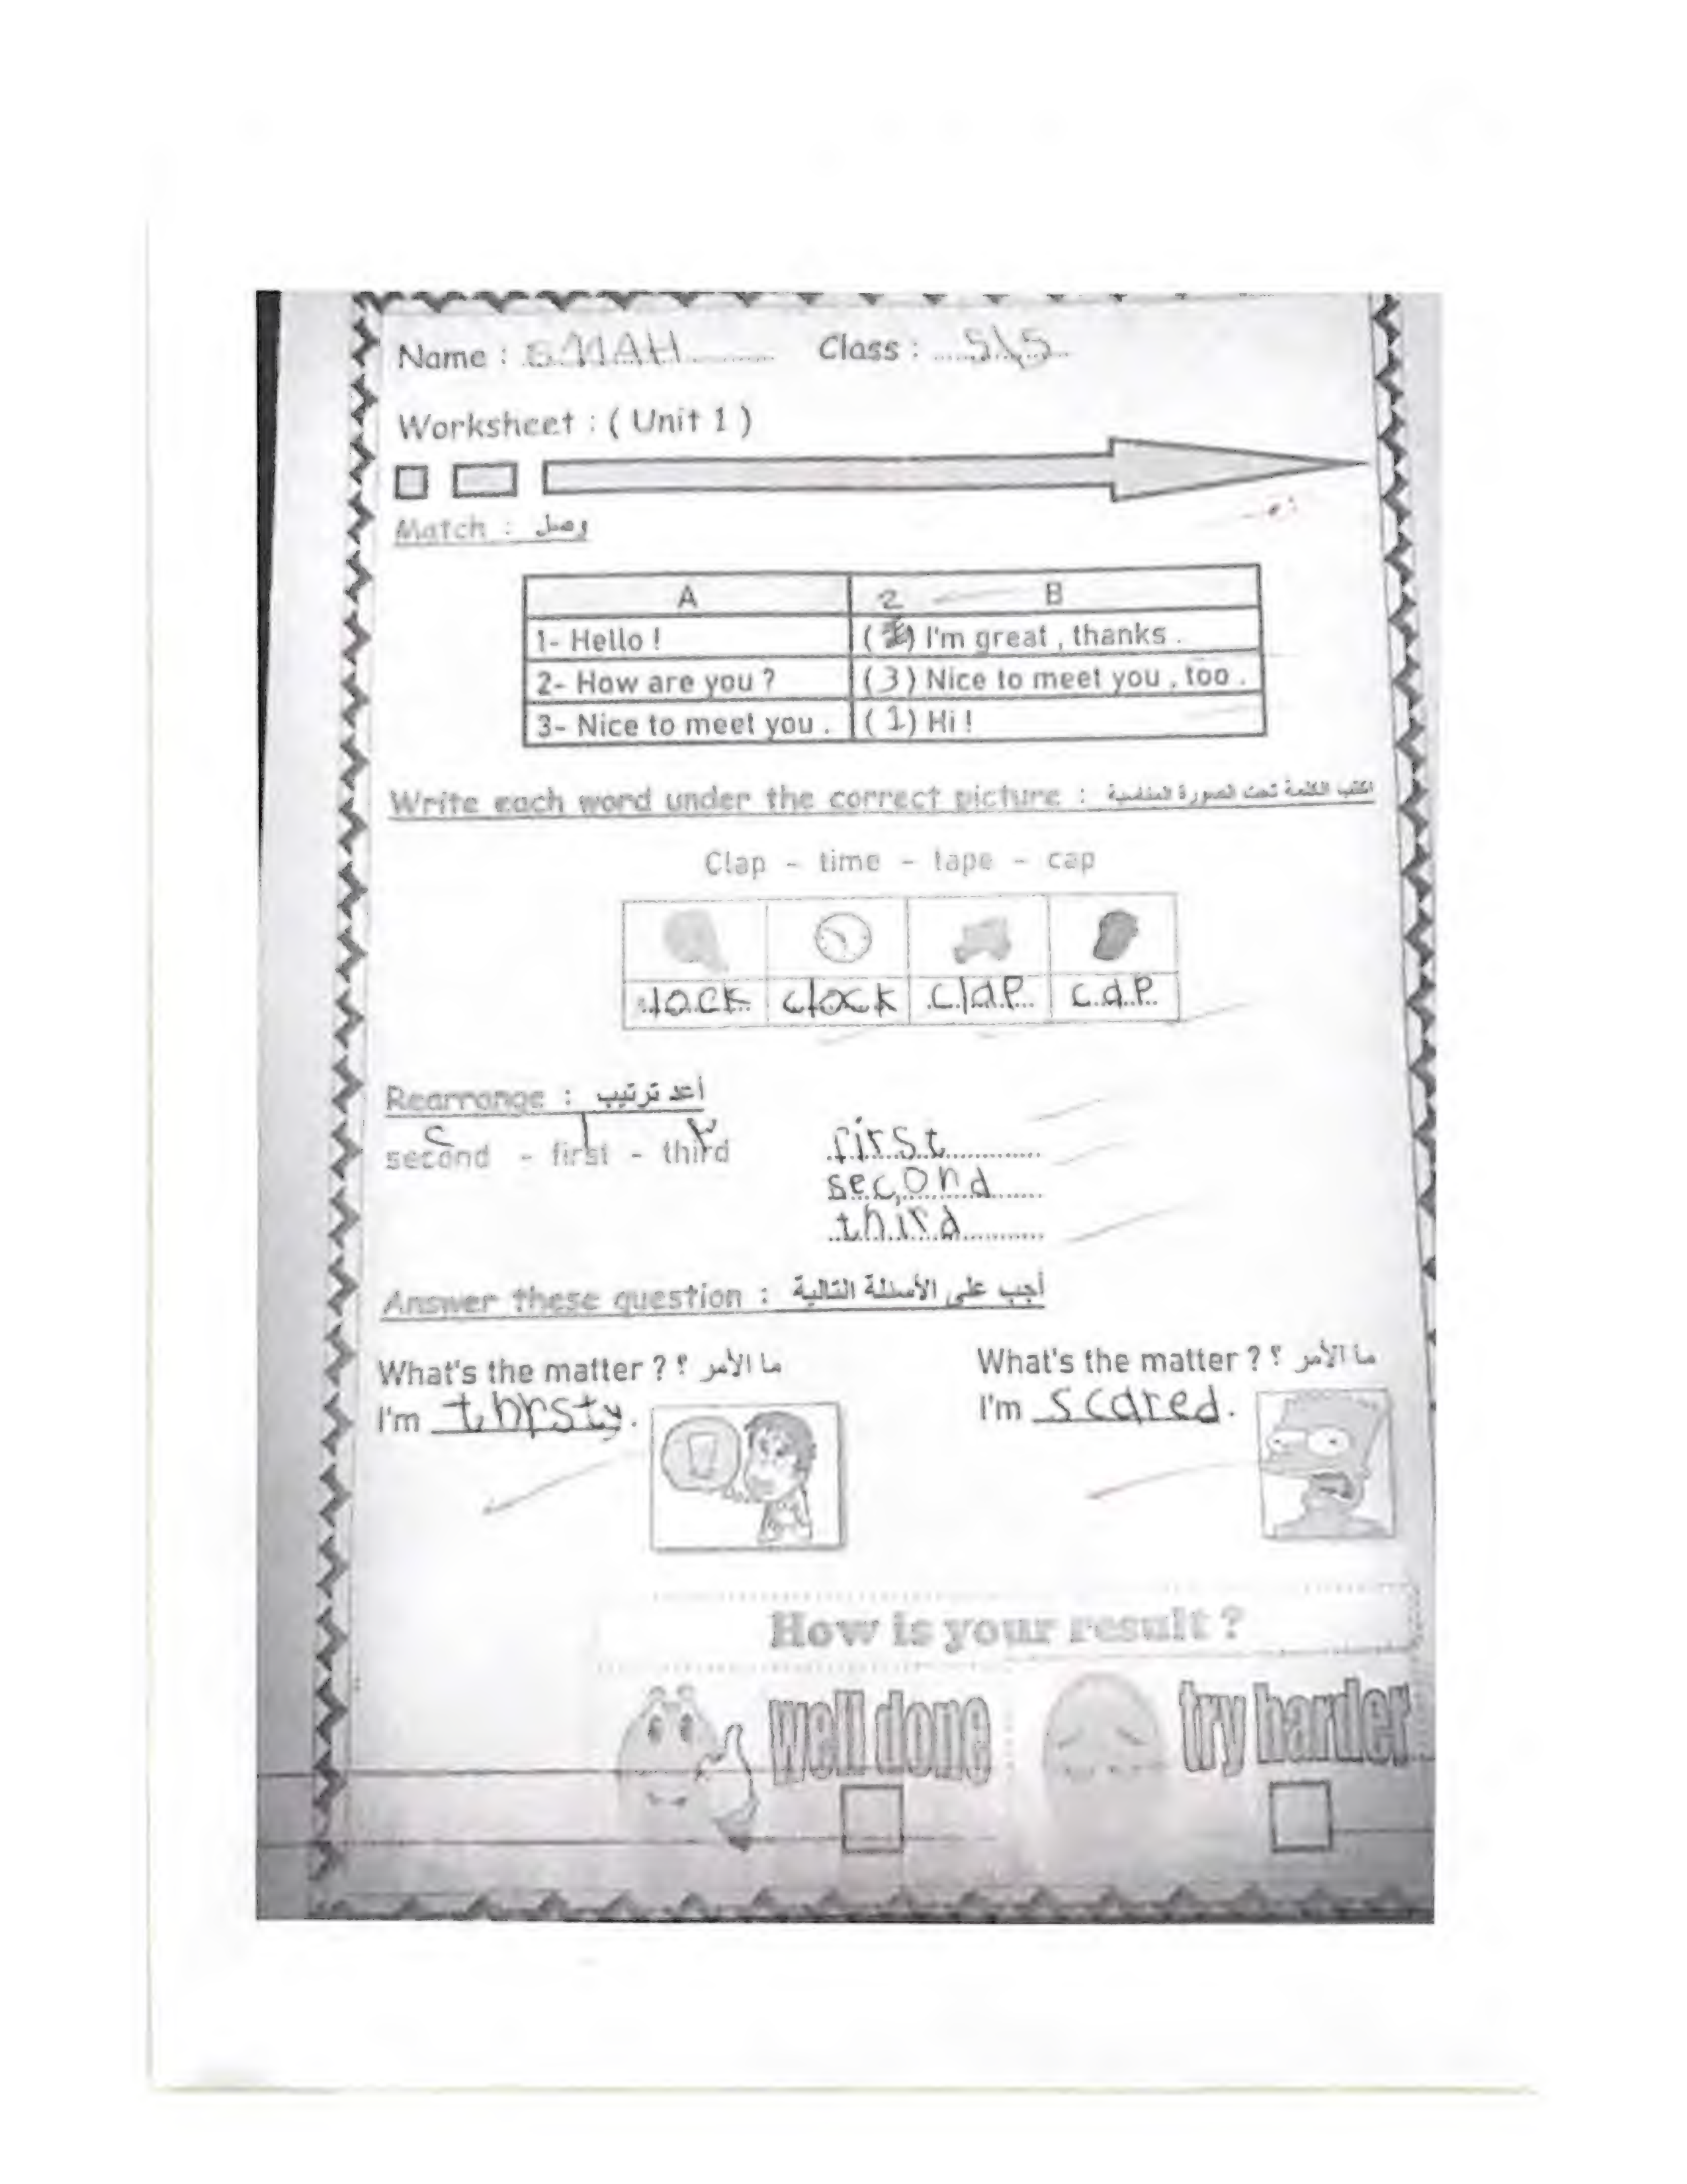 Name : SMAH Class : 5\5
Worksheet : ( Unit 1 )
Match : وصل
A 2 B
1- Hello ! ( ) I'm great , thanks .
2- How are you ? ( 3 ) Nice to meet you , too .
3- Nice to meet you . ( 1 ) Hi !
Write each word under the correct picture : اكتب الكلمة تحت الصورة المناسبة
Clap - time - tape - cap
clock clap cap
Rearrange : أعد ترتيب
second - first - third
first
second
third
Answer these question : أجب على الأسئلة التالية
What's the matter ? ما الأمر ؟ What's the matter ? ما الأمر ؟
I'm thrsty . I'm scared .
How is your result ?
well done try harder